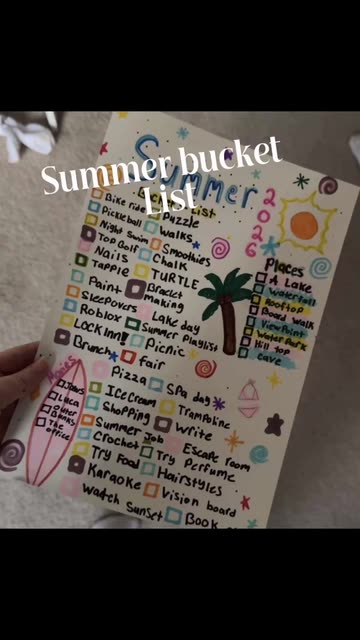 Summer bucket
List
Summer
2026
Bike ride
Puzzle
Pickleball
Walks
Night Swim
Smoothies
Top Golf
Chalk
Nails
TURTLE
Tapple
Bracelet
making
Paint
Sleepovers
Lake day
Roblox
Summer Playlist
LOCK Inn!!
Picnic
Brunch
fair
Pizza
Spa day
Ice Cream
Trampoline
Shopping
Write
Summer Job
Escape room
Crochet
Try Perfume
Try Food
Hairstyles
Karaoke
Vision board
Watch Sunset
Book
Places
A Lake
Waterfall
Rooftop
Board walk
ViewPoint
Water Park
Hill top
cave
Movies
Jaws
Luca
Outer
Banks
The
office